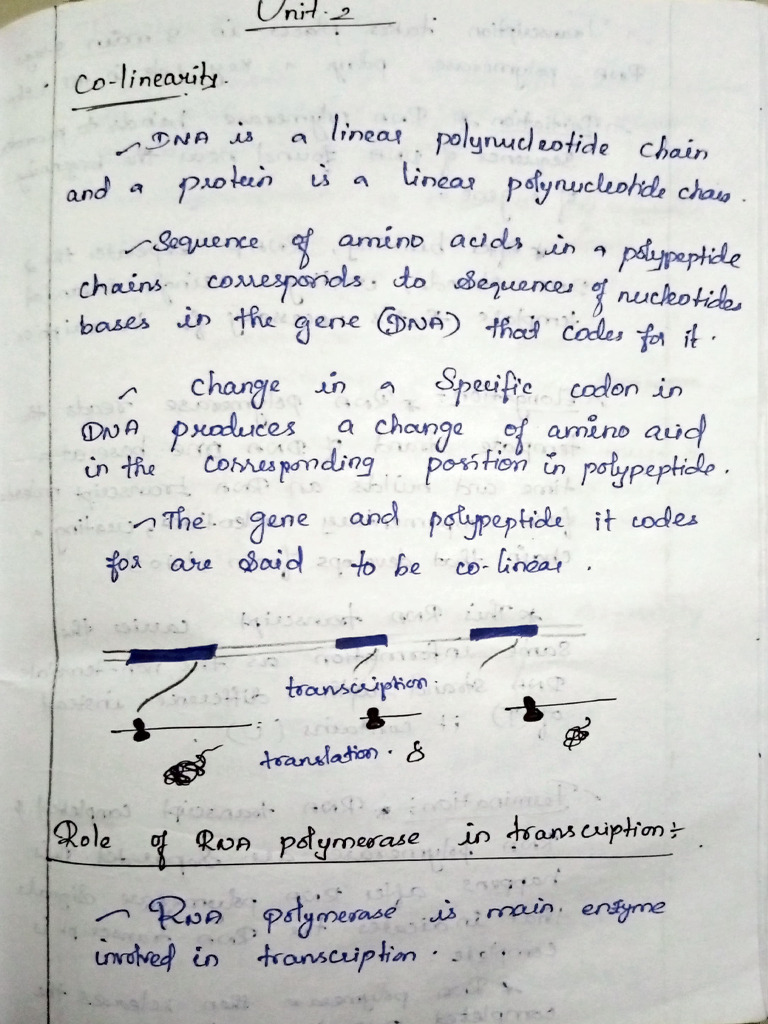 Unit-2
Co-linearity.
DNA is a linear polynucleotide chain
and a protein is a linear polynucleotide chain.
Sequence of amino acids in a polypeptide
chains corresponds to sequences of nucleotides
bases in the gene (DNA) that codes for it.
change in a Specific codon in
DNA produces a change of amino acid
in the corresponding position in polypeptide.
The gene and polypeptide it codes
for are said to be co-linear.
transcription
translation.
Role of RNA polymerase in transcription:-
RNA polymerase is main enzyme
involved in transcription.